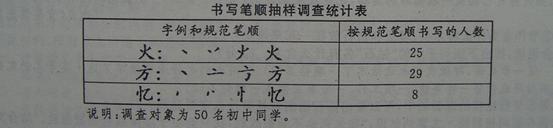 书写笔顺抽样调查统计表
字例和规范笔顺 按规范笔顺书写的人数
火：丶 丷 少 火 25
方：丶 亠 亍 方 29
忆：丶 丷 忄 忆 8
说明：调查对象为50名初中同学。